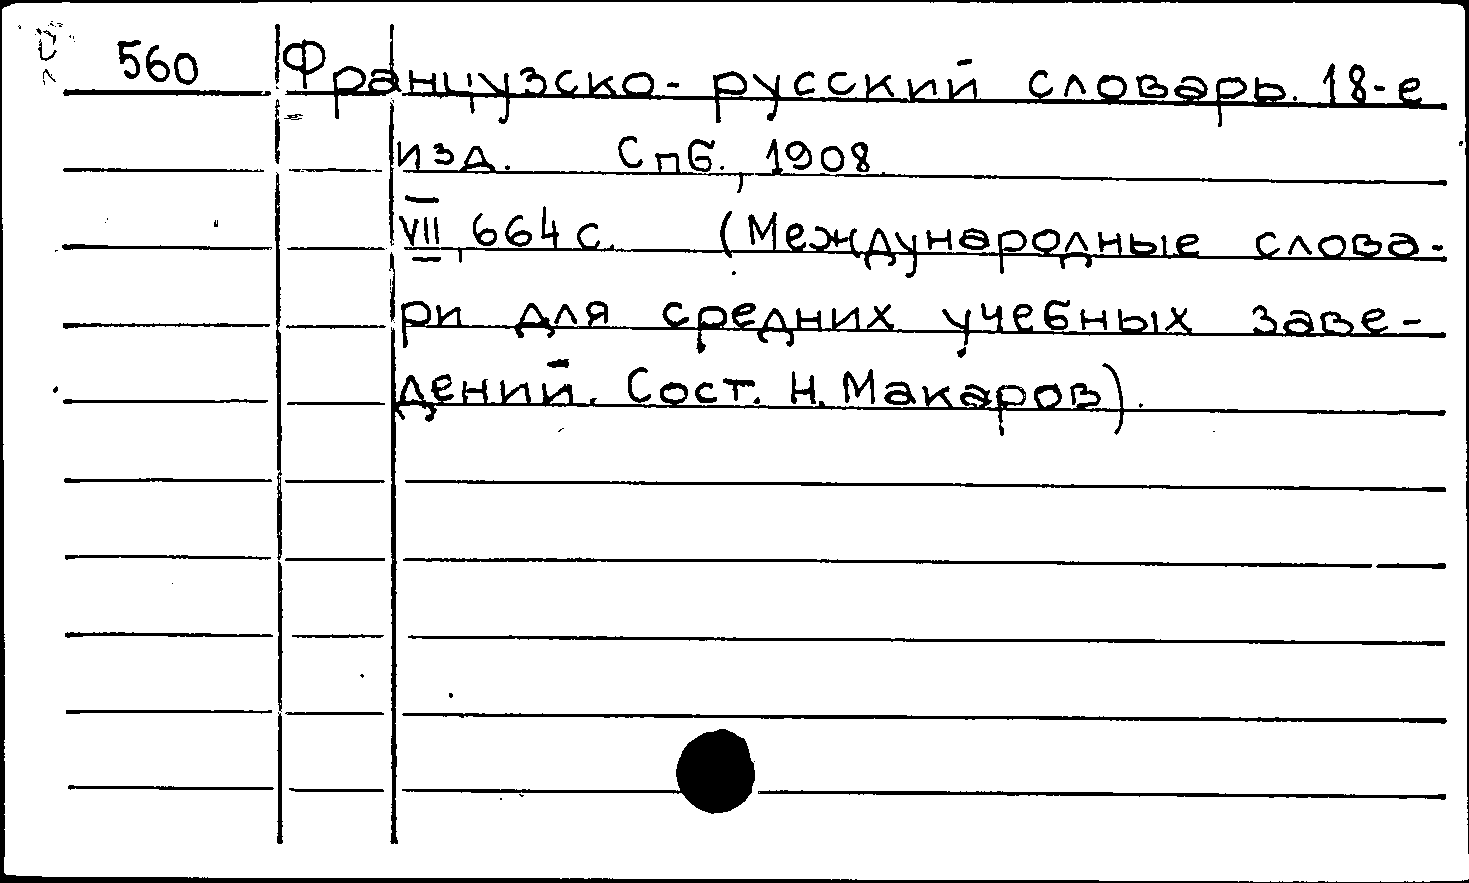 560 Французско-русский словарь. 18-е
изд. Спб., 1908
VII, 664 с. (Международные слова-
ри для средних учебных заве-
дений. Сост. Н. Макаров).